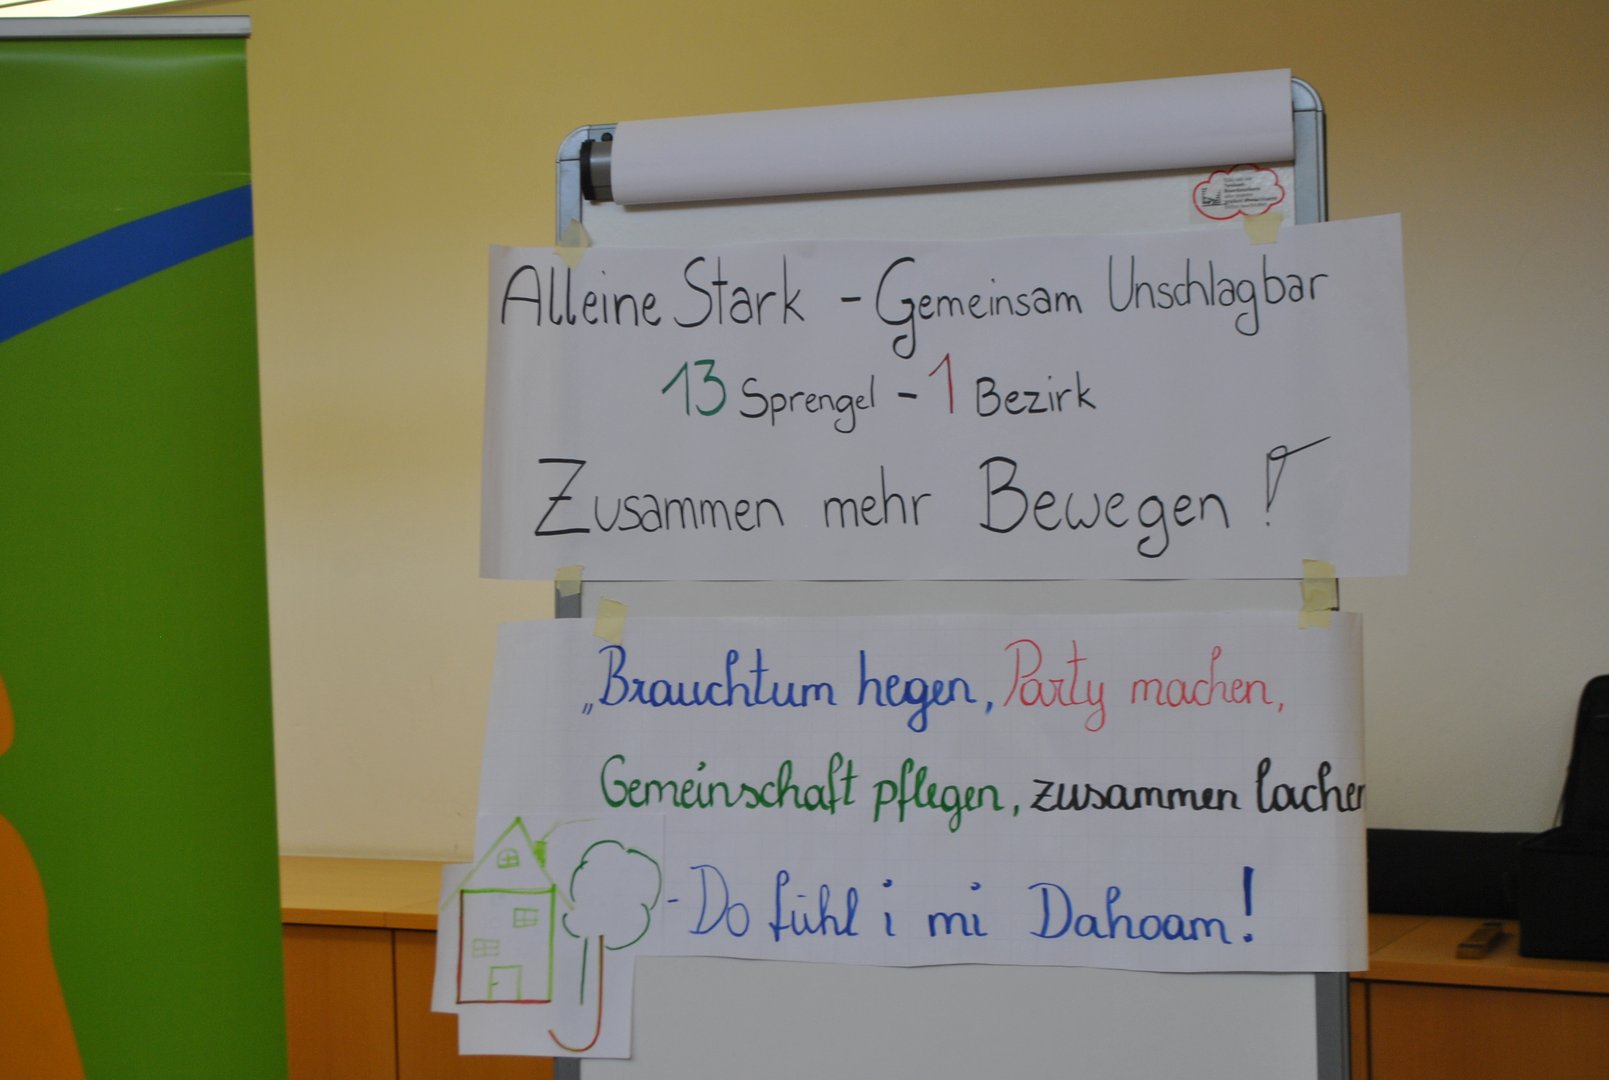 Alleine Stark - Gemeinsam Unschlagbar
13 Sprengel - 1 Bezirk
Zusammen mehr Bewegen!
„Brauchtum hegen, Party machen,
Gemeinschaft pflegen, zusammen lachen
- Do fühl i mi Dahoam!